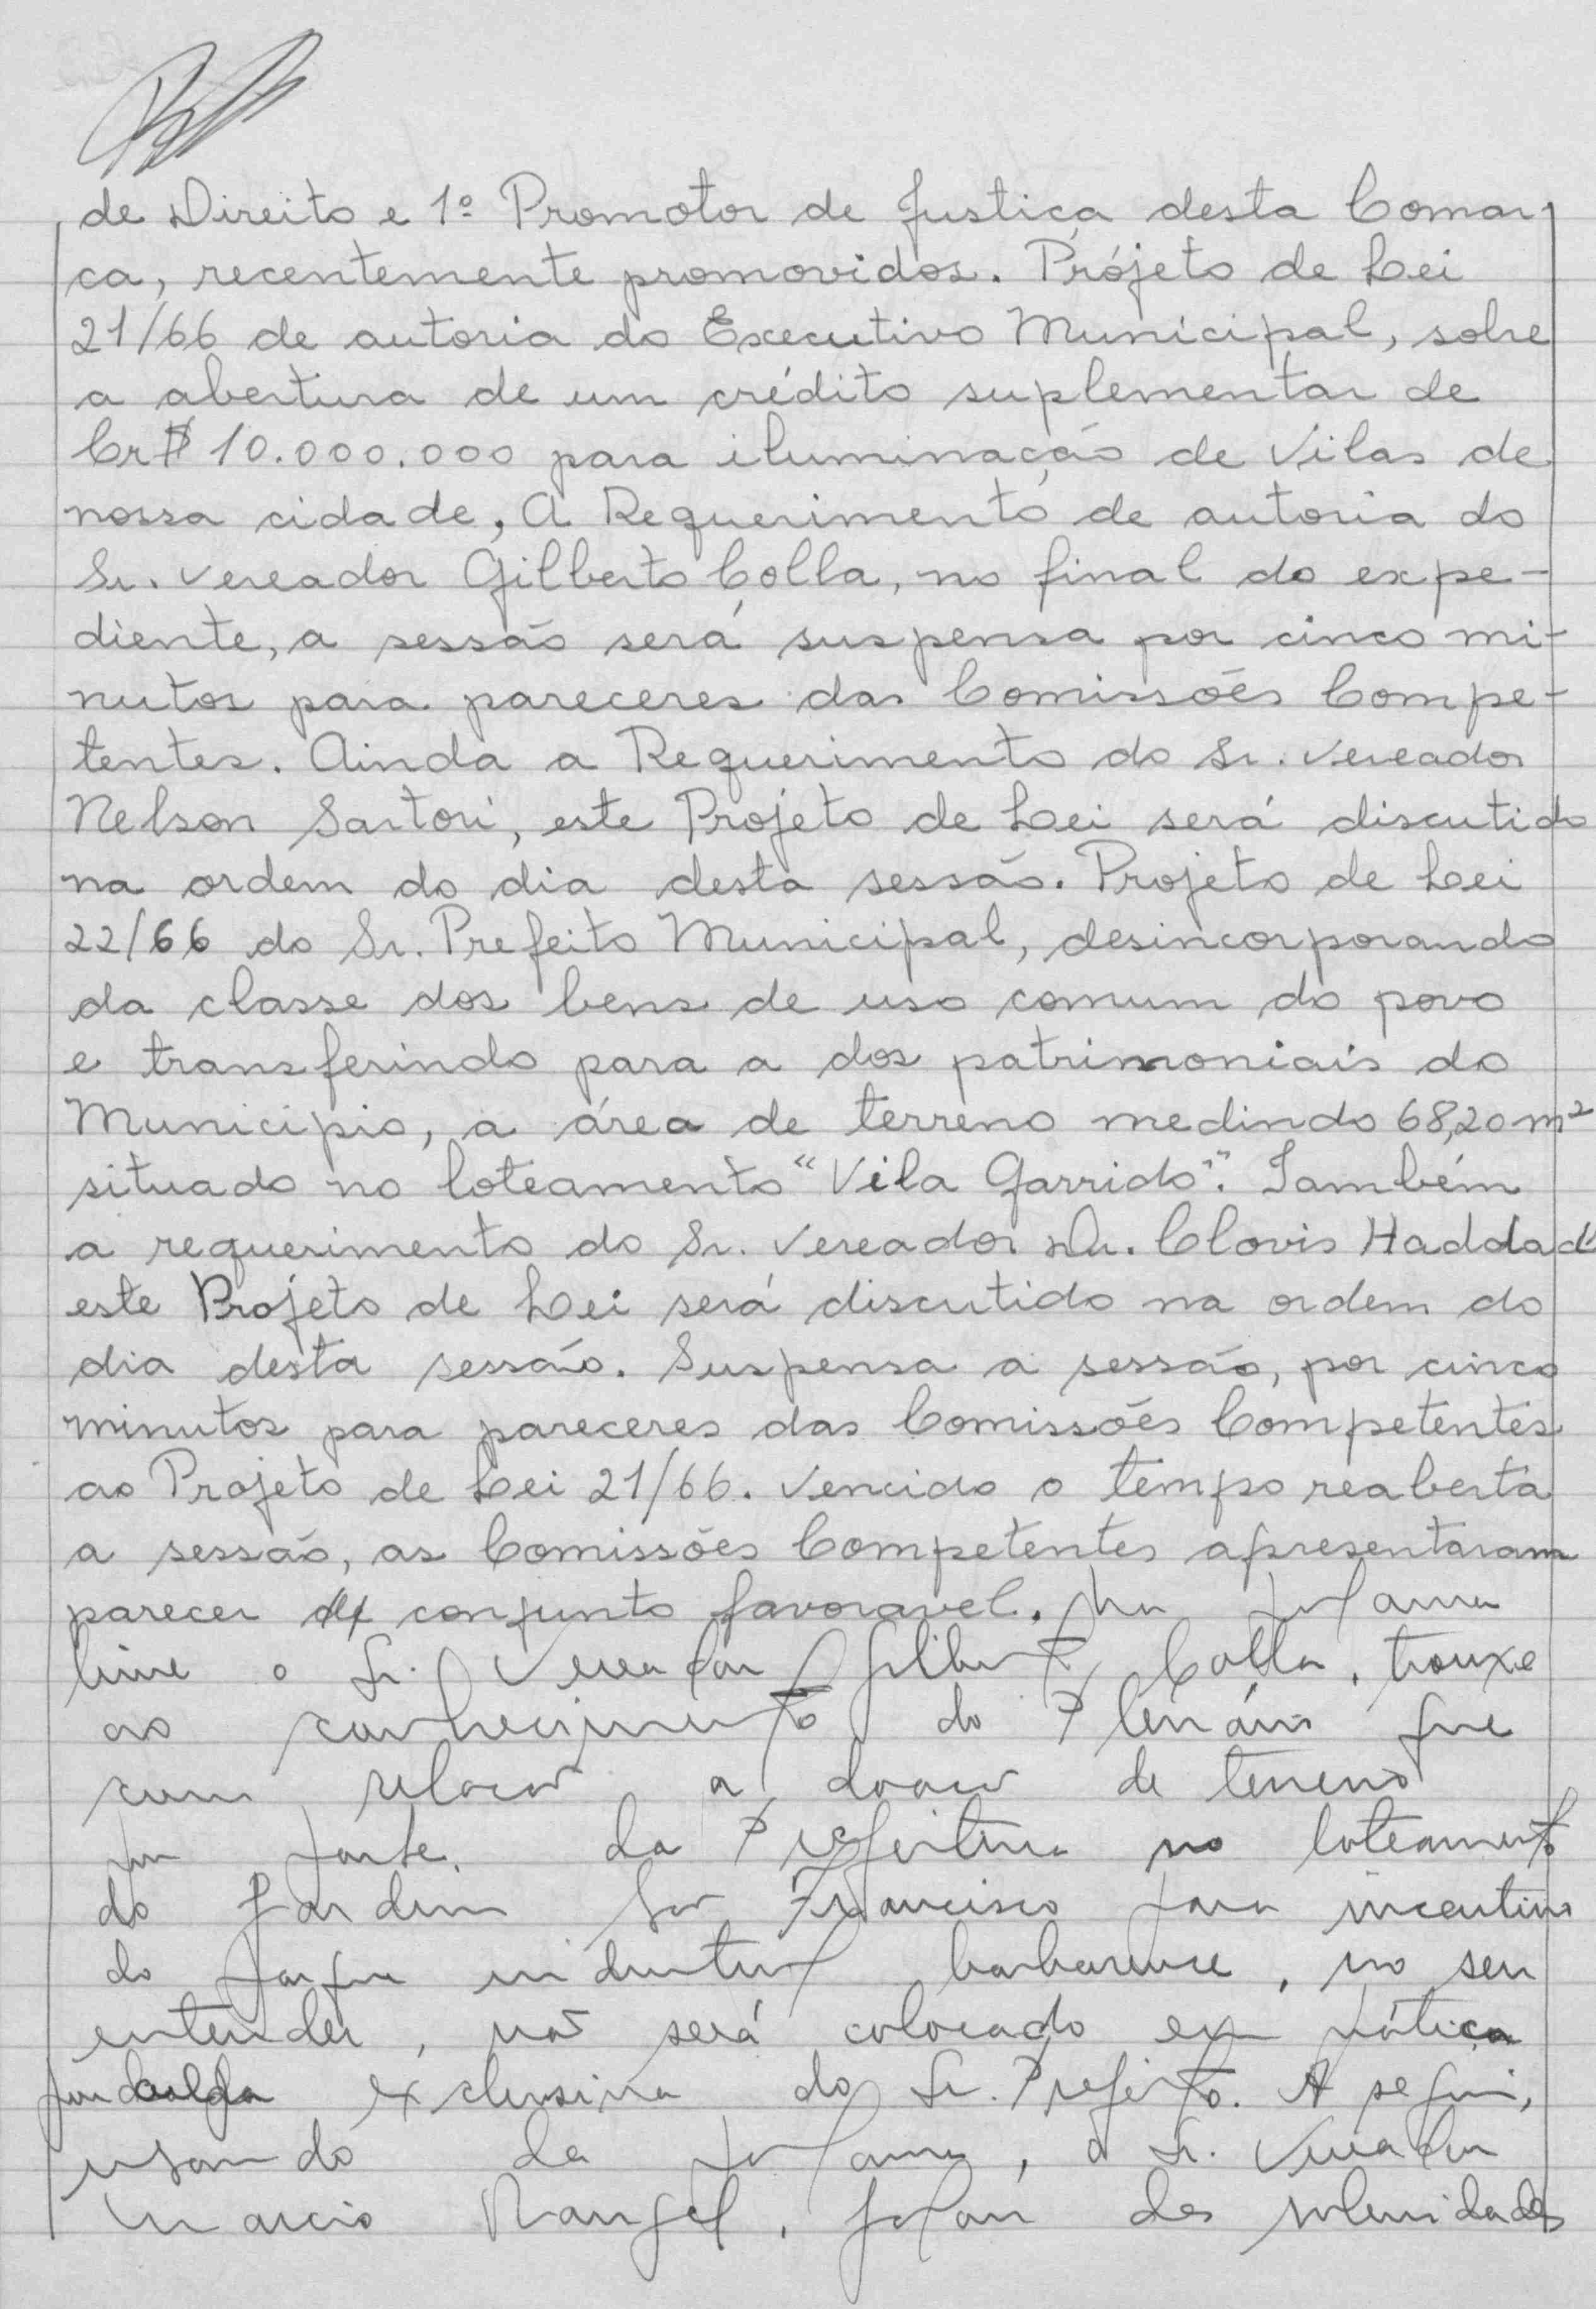 de Direito e 1º Promotor de Justiça desta Comar-
ca, recentemente promovidos. Prójeto de Lei
21/66 de autoria do Executivo Municipal, sobre
a abertura de um crédito suplementar de
Cr$ 10.000.000 para iluminação de Vilas de
nossa cidade, A Requerimento de autoria do
Sr. Vereador Gilberto Colla, no final do expe-
diente, a sessão será suspensa por cinco mi-
nutos para pareceres das Comissões Compe-
tentes. Ainda a Requerimento do Sr. Vereador
Nelson Sartori, este Projeto de Lei será discutido
na ordem do dia desta sessão. Projeto de Lei
22/66 do Sr. Prefeito Municipal, desincorporando
da classe dos bens de uso comum do povo
e transferindo para a dos patrimoniais do
Municipio, a área de terreno medindo 68,20 m²
situado no loteamento "Vila Garrido". Também
a requerimento do Sr. Vereador Dr. Clovis Haddad
este Projeto de Lei será discutido na ordem do
dia desta sessão. Suspensa a sessão, por cinco
minutos para pareceres das Comissões Competentes
ao Projeto de Lei 21/66. Vencido o tempo reaberta
a sessão, as Comissões Competentes apresentaram
parecer conjunto favoravel. Na palavra
livre o Sr. Vereador Gilberto Colla, trouxe
ao conhecimento do Plenário que
com relação a doação de terreno
por parte da Prefeitura no loteamento
do Jardim São Francisco para incentivo
do parque industrial barbarense, no seu
entender, não será colocado em prática
por culpa exclusiva do Sr. Prefeito. A seguir,
usando da palavra, o Sr. Vereador
Marcio Rangel, falou das solenidades